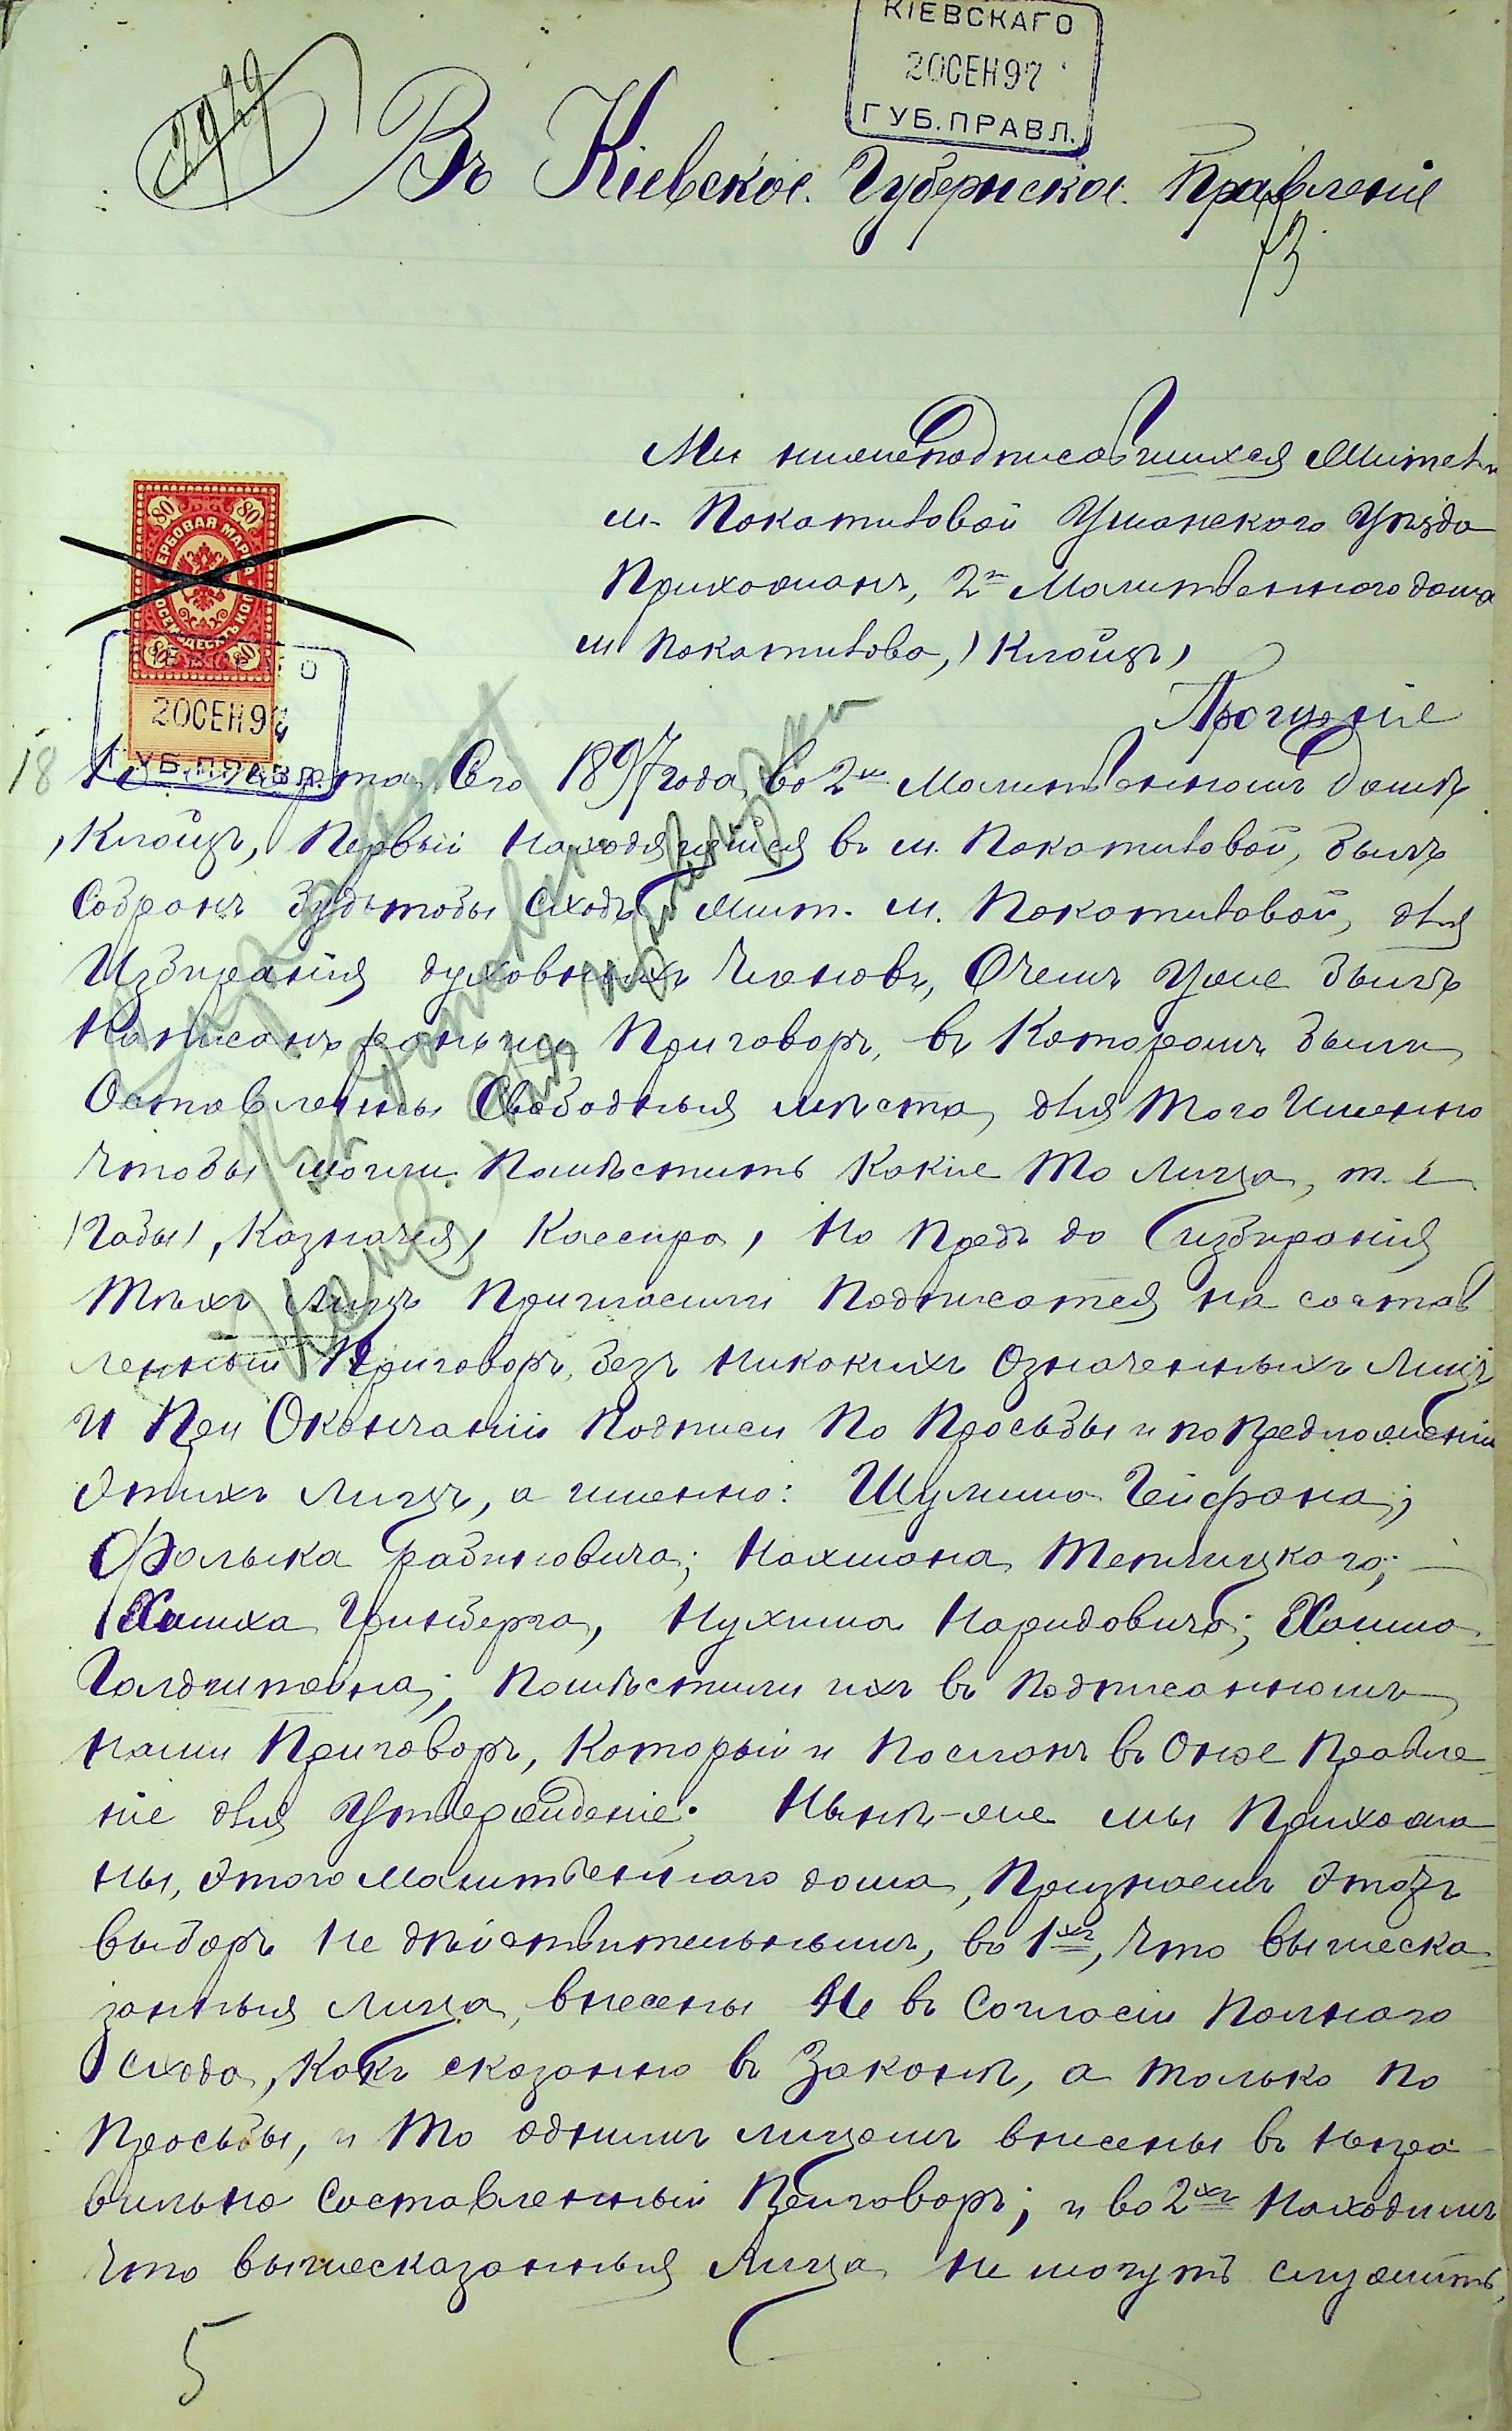 КІЕВСКАГО
20 СЕН 97
ГУБ. ПРАВЛ.
2929
Въ Кіевское Губернское Правленіе
73
Мы нижеподписавшихся жители
м. Покотиловой Уманского Уѣзда
Прихожанъ, 2го Молитвенного дома
м Покотилово, (Клойзъ)
Прошеніе
80 80
ГЕРБОВАЯ МАРКА
ВОСЕМЬДЕСЯТЪ КОП.
80 80
20 СЕН 97
ГУБ. ПРАВЛ.
18
Марта Сего 1897 года, во 2м Молитвенномъ домѣ
(Клойзъ) Первый находящейся в м. Покотиловой, былъ
Собранъ будьтобы Сходъ жит. м. Покотиловой, для
Избиранія духовныхъ Членовъ, О чемъ уже былъ
Написанъ раньше Приговоръ, въ Которомъ были
Оставленны Свободныя мѣста, для того Именно
чтобы могли Помѣстить Какіе то лица, т. е
(Габы), Казначея, Кассира, но Предъ до избиранія
тѣхъ лицъ Пригласили Подписатся на состав
ленный Приговоръ, безъ никокихъ означенныхъ лицъ
и При Окончаніи подписи По Просьбы и по Предложеніи
этихъ лицъ, а именно: Шулима Гейфона;
Фалька рабиновича; Нахмана Теплицкого;
Хаиха Гринберга, Нухима Наридовича; Хаима
Голдштейна; Помѣстили ихъ въ Подписанномъ
нами Приговоръ, Который и Посланъ въ Оное Правле
ніе для Утвержденіе; Нынѣ-же мы Прихожа
ны, этого Молитвенного дома, Признаемъ этотъ
выборъ не дѣйствительнымъ, во 1хъ, что вышеска
занныя лица, внесены не въ Согласіи Полного
Схода, Какъ сказанно въ Законѣ, а только По
Просьбы, и то однимъ лицомъ внесены в непра
вильно Составленный Приговоръ; и во 2хъ Находимъ
что вышесказанныя лица не могутъ служить,
5